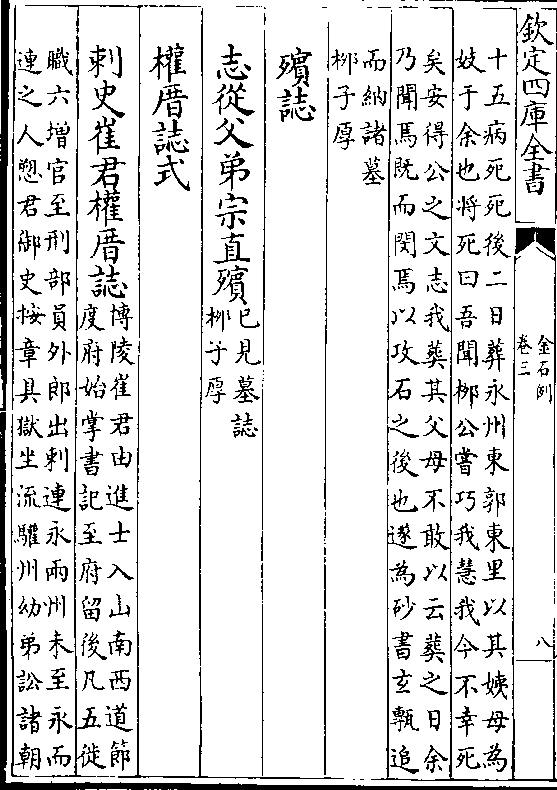 欽定四庫全書
金石例
卷三
八
十五病死死後二日葬永州東郭東里以其姨母為
妓于余也將死曰吾聞柳公嘗巧我慧我今不幸死
矣安得公之文志我葬其父母不敢以云葬之日余
乃聞焉既而閔焉以攻石之後也遂為砂書玄甎追
而納諸墓
柳子厚
殯誌
志從父弟宗直殯
已見墓誌
柳子厚
權厝誌式
刺史崔君權厝誌
博陵崔君由進士入山南西道節
度府始掌書記至府留後凡五徙
職六增官至刑部員外郎出刺連永兩州未至永而
連之人愬君御史按章具獄坐流驩州幼弟訟諸朝